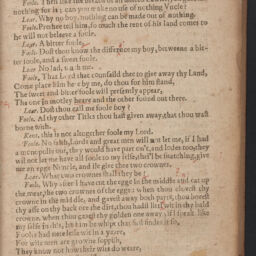 nothing for it; can you make no use of nothing Vncle?
Lear. Why no boy, nothing can be made out of nothing.
Foole. Prethee tell him, so much the rent of his land comes to
he will not beleeue a foole.
Lear. A bitter foole.
Foole. Dost thou know the difference my boy, betweene a bit-
ter foole, and a sweet foole.
Lear No lad, teach me.
Foole. That Lord that counsaild thee to giue away thy Land,
Come place him heere by me, doe thou for him stand,
The sweet and bitter foole will presently appeare,
The one in motley heere, and the other found out there.
Lear. Dost thou call me foole boy?
Foole. All thy other Titles thou hast giuen away, that thou wast
borne with.
Kent. this is not altogether foole my Lord.
Foole. No faith, Lords and great men will not let me, if I had
a monopolie out, they would haue part on't, and lodes too, they
will not let me haue all foole to my selfe, they'l be snatching, giue
me an egge Nuncle, and ile giue thee two crownes.
Lear. What two crownes shall they be?
Foole. Why after I haue cut the egge in the middle and eat vp
the meat, the two crownes of the egge: when thou clouest thy
crowne in the middle, and gauest away both parts, thou borest
thy asse on the back ore the dirt, thou hadst little wit in thy bald
crowne, when thou gauest thy golden one away; if I speake like
my selfe in this, let him be whipt that first findes it so,
Fooles had nere lesse wit in a yeare,
For wise men are growne foppish,
They know not how their wits do weare,